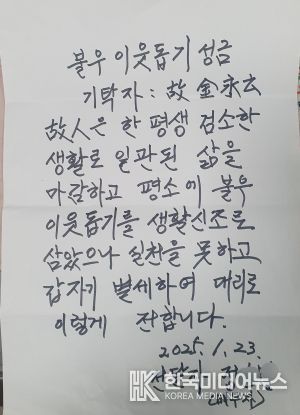 불우 이웃돕기 성금
기탁자: 故 金永玄
故人은 한 평생 검소한
생활로 일관된 삶을
마감하고 평소에 불우
이웃돕기를 생활신조로
삼았으나 실천을 못하고
갑자기 별세하여 대리로
이렇게 전합니다.
2025. 1. 23.
전달자
한국미디어뉴스
KOREA MEDIA NEWS